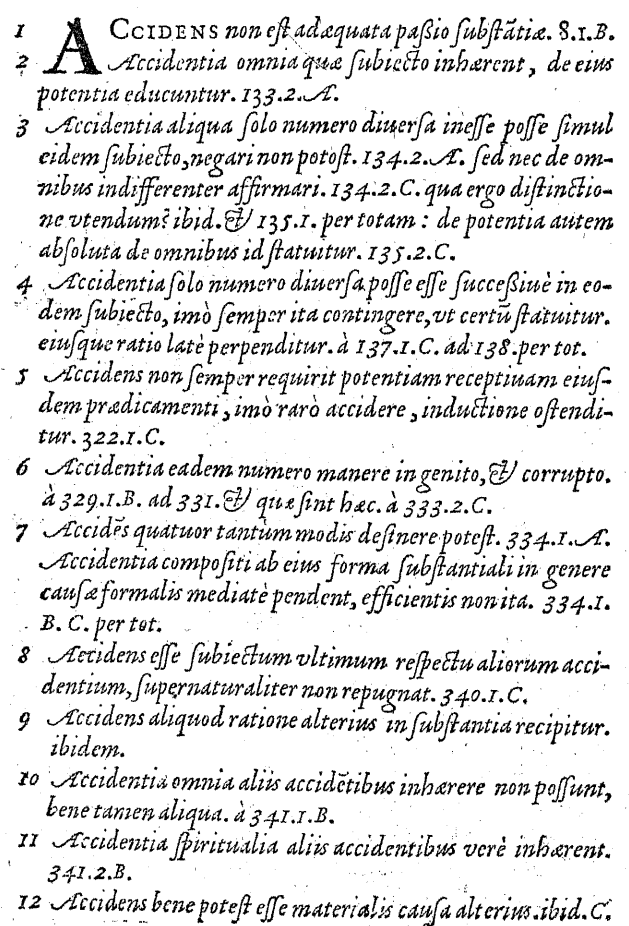 1 ACCIDENS non est adæquata paßio substãtiæ. 8.1.B.
2 Accidentia omnia quæ subiecto inhærent, de eius
potentia educuntur. 133.2.A.
3 Accidentia aliqua solo numero diuersa inesse posse simul
eidem subiecto, negari non potost. 134.2.A. sed nec de om-
nibus indifferenter affirmari. 134.2.C. qua ergo distinctio-
ne vtendum? ibid. & 135.1. per totam : de potentia autem
absoluta de omnibus id statuitur. 135.2.C.
4 Accidentia solo numero diuersa posse esse succeßiuè in eo-
dem subiecto, imò semper ita contingere, vt certũ statuitur.
eiusque ratio latè perpenditur. à 137.1.C. ad 138. per tot.
5 Accidens non semper requirit potentiam receptiuam eius-
dem prædicamenti, imò rarò accidere, inductione ostendi-
tur. 322.1.C.
6 Accidentia eadem numero manere in genito, & corrupto.
à 329.1.B. ad 331. & quæ sint hæc. à 333.2.C.
7 Accidẽs quatuor tantùm modis desinere potest. 334.1.A.
Accidentia compositi ab eius forma substantiali in genere
causæ formalis mediatè pendent, efficientis non ita. 334.1.
B. C. per tot.
8 Accidens esse subiectum vltimum respectu aliorum acci-
dentium, supernaturaliter non repugnat. 340.1.C.
9 Accidens aliquod ratione alterius in substantia recipitur.
ibidem.
10 Accidentia omnia aliis accidẽtibus inhærere non possunt,
bene tamen aliqua. à 341.1.B.
11 Accidentia spiritualia aliis accidentibus verè inhærent.
341.2.B.
12 Accidens bene potest esse materialis causa alterius. ibid. C.